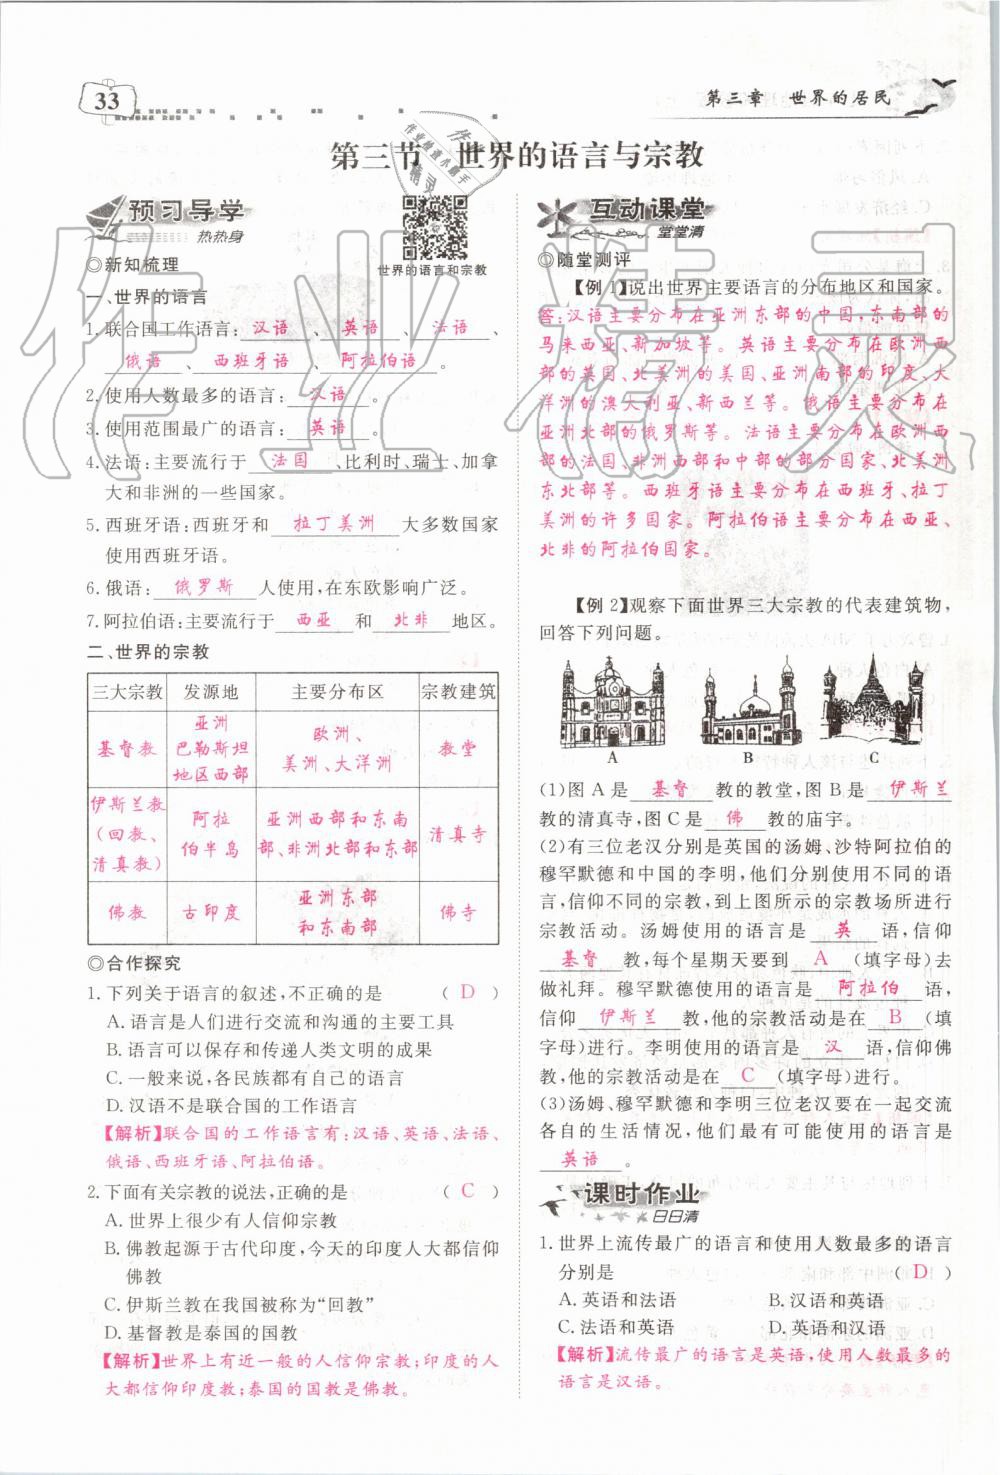 33
第三章　世界的居民
第三节　世界的语言与宗教
预习导学
热热身
世界的语言和宗教
◎新知梳理
一、世界的语言
1. 联合国工作语言: 汉语 、 英语 、 法语 、
俄语 、 西班牙语 、 阿拉伯语 。
2. 使用人数最多的语言: 汉语 。
3. 使用范围最广的语言: 英语 。
4. 法语:主要流行于 法国 、比利时、瑞士、加拿
大和非洲的一些国家。
5. 西班牙语:西班牙和 拉丁美洲 大多数国家
使用西班牙语。
6. 俄语: 俄罗斯 人使用,在东欧影响广泛。
7. 阿拉伯语:主要流行于 西亚 和 北非 地区。
二、世界的宗教
三大宗教 发源地 主要分布区 宗教建筑
基督教 亚洲巴勒斯坦地区西部 欧洲、美洲、大洋洲 教堂
伊斯兰教(回教、清真教) 阿拉伯半岛 亚洲西部和东南部、非洲北部和东部 清真寺
佛教 古印度 亚洲东部和东南部 佛寺
◎合作探究
1. 下列关于语言的叙述,不正确的是 ( D )
A. 语言是人们进行交流和沟通的主要工具
B. 语言可以保存和传递人类文明的成果
C. 一般来说,各民族都有自己的语言
D. 汉语不是联合国的工作语言
【解析】联合国的工作语言有:汉语、英语、法语、
俄语、西班牙语、阿拉伯语。
2. 下面有关宗教的说法,正确的是 ( C )
A. 世界上很少有人信仰宗教
B. 佛教起源于古代印度,今天的印度人大都信仰
佛教
C. 伊斯兰教在我国被称为“回教”
D. 基督教是泰国的国教
【解析】世界上有近一般的人信仰宗教;印度的人
大都信仰印度教;泰国的国教是佛教。
互动课堂
堂堂清
◎随堂测评
【例 1】说出世界主要语言的分布地区和国家。
答:汉语主要分布在亚洲东部的中国,东南部的
马来西亚、新加坡等。英语主要分布在欧洲西
部的英国、北美洲的美国、亚洲南部的印度、大
洋洲的澳大利亚、新西兰等。俄语主要分布在
欧洲东部的俄罗斯等。法语主要分布在欧洲西
部的法国、非洲西部和中部的部分国家、北美洲
东北部等。西班牙语主要分布在西班牙、拉丁
美洲的许多国家。阿拉伯语主要分布在西亚、
北非的阿拉伯国家。
【例 2】观察下面世界三大宗教的代表建筑物,
回答下列问题。
A B C
(1)图 A 是 基督 教的教堂,图 B 是 伊斯兰
教的清真寺,图 C 是 佛 教的庙宇。
(2)有三位老汉分别是英国的汤姆、沙特阿拉伯的
穆罕默德和中国的李明,他们分别使用不同的语
言,信仰不同的宗教,到上图所示的宗教场所进行
宗教活动。汤姆使用的语言是 英 语,信仰
基督 教,每个星期天要到 A (填字母)去
做礼拜。穆罕默德使用的语言是 阿拉伯 语,
信仰 伊斯兰 教,他的宗教活动是在 B (填
字母)进行。李明使用的语言是 汉 语,信仰佛
教,他的宗教活动是在 C (填字母)进行。
(3)汤姆、穆罕默德和李明三位老汉要在一起交流
各自的生活情况,他们最有可能使用的语言是
英语 。
课时作业
日日清
1. 世界上流传最广的语言和使用人数最多的语言
分别是 ( D )
A. 英语和法语 B. 汉语和英语
C. 法语和英语 D. 英语和汉语
【解析】流传最广的语言是英语,使用人数最多的
语言是汉语。
作业精灵